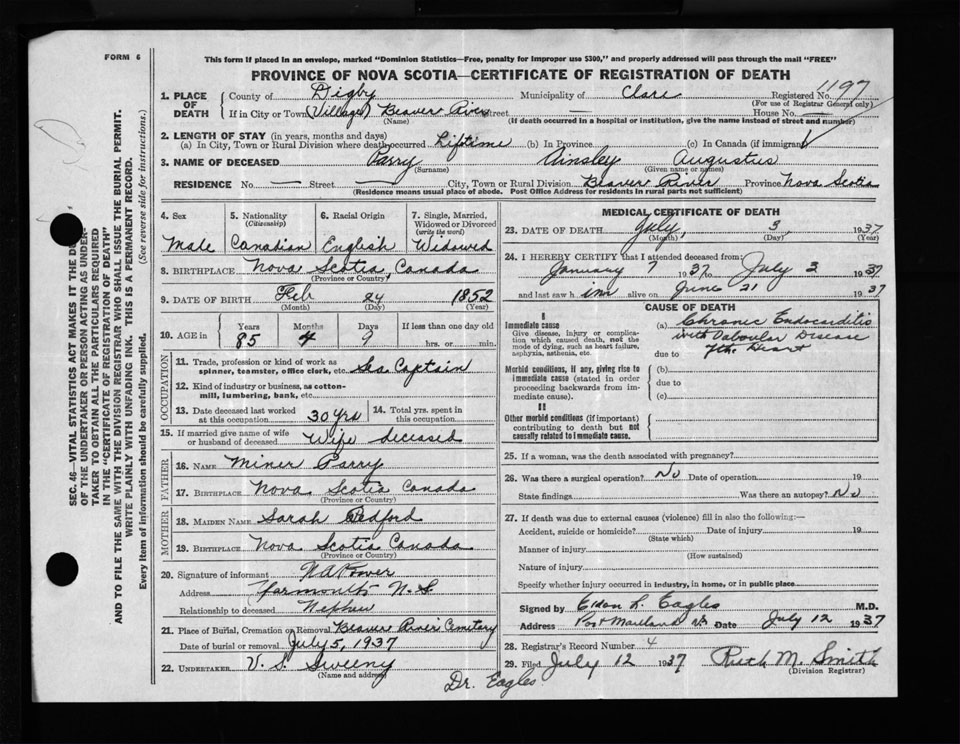 FORM 6
This form if placed in an envelope, marked "Dominion Statistics—Free, penalty for improper use $300," and properly addressed will pass through the mail "FREE"
PROVINCE OF NOVA SCOTIA—CERTIFICATE OF REGISTRATION OF DEATH
1197
1. PLACE OF DEATH County of Digby Municipality of Clare Registered No.
(For use of Registrar General only)
If in City or Town (Village) Beaver River Street — House No. —
(Name) (If death occurred in a hospital or institution, give the name instead of street and number)
2. LENGTH OF STAY (in years, months and days)
(a) In City, Town or Rural Division where death occurred Liftime (b) In Province (c) In Canada (if immigrant)
3. NAME OF DECEASED Parry Ainsley Augustus
(Surname) (Given name or names)
RESIDENCE No. — Street — City, Town or Rural Division Beaver River Province Nova Scotia
(Residence means usual place of abode. Post Office Address for residents in rural parts not sufficient)
4. Sex 5. Nationality (Citizenship) 6. Racial Origin 7. Single, Married, Widowed or Divorced (write the word)
Male Canadian English Widowed
8. BIRTHPLACE Nova Scotia, Canada
(Province or Country)
9. DATE OF BIRTH Feb 24 1852
(Month) (Day) (Year)
10. AGE in Years Months Days If less than one day
85 4 9 hrs. or min.
OCCUPATION
11. Trade, profession or kind of work as spinner, teamster, office clerk, etc. Sea Captain
12. Kind of industry or business, as cotton-mill, lumbering, bank, etc.
13. Date deceased last worked at this occupation 30 yrs 14. Total yrs. spent in this occupation
15. If married give name of wife or husband of deceased Wife deceased
FATHER
16. NAME Miner Parry
17. BIRTHPLACE Nova Scotia Canada
(Province or Country)
MOTHER
18. MAIDEN NAME Sarah Bedford
19. BIRTHPLACE Nova Scotia Canada
(Province or Country)
20. Signature of informant
Address Yarmouth N.S.
Relationship to deceased Nephew
21. Place of Burial, Cremation or Removal Beaver River Cemetery
Date of burial or removal July 5, 1937
22. UNDERTAKER V. S. Sweeny
(Name and address)
Dr. Eagles
MEDICAL CERTIFICATE OF DEATH
23. DATE OF DEATH July 3 1937
(Month) (Day) (Year)
24. I HEREBY CERTIFY that I attended deceased from:
January 7 1937 to July 3 1937
and last saw him alive on June 21 1937
CAUSE OF DEATH
I
Immediate cause
Give disease, injury or complication which caused death, not the mode of dying, such as heart failure, asphyxia, asthenia, etc.
(a) Chronic Endocarditis
with Valvular Disease
due to of the Heart
Morbid conditions, if any, giving rise to immediate cause (stated in order proceeding backwards from immediate cause).
(b)
due to
(c)
II
Other morbid conditions (if important) contributing to death but not causally related to immediate cause.
25. If a woman, was the death associated with pregnancy?
26. Was there a surgical operation? No Date of operation 19
State findings Was there an autopsy? No
27. If death was due to external causes (violence) fill in also the following:—
Accident, suicide or homicide? Date of injury 19
(State which)
Manner of injury
(How sustained)
Nature of injury
Specify whether injury occurred in industry, in home, or in public place
Signed by Eldon L. Eagles M.D.
Address Port Maitland NS Date July 12 1937
28. Registrar's Record Number 4
29. Filed July 12 1937 Ruth M. Smith
(Division Registrar)
SEC. 46—VITAL STATISTICS ACT MAKES IT THE
OF THE UNDERTAKER OR PERSON ACTING AS UNDER-
TAKER TO OBTAIN ALL THE PARTICULARS REQUIRED
IN THE "CERTIFICATE OF REGISTRATION OF DEATH"
AND TO FILE THE SAME WITH THE DIVISION REGISTRAR WHO SHALL ISSUE THE BURIAL PERMIT.
WRITE PLAINLY WITH UNFADING INK. THIS IS A PERMANENT RECORD.
Every item of information should be carefully supplied. (See reverse side for instructions.)